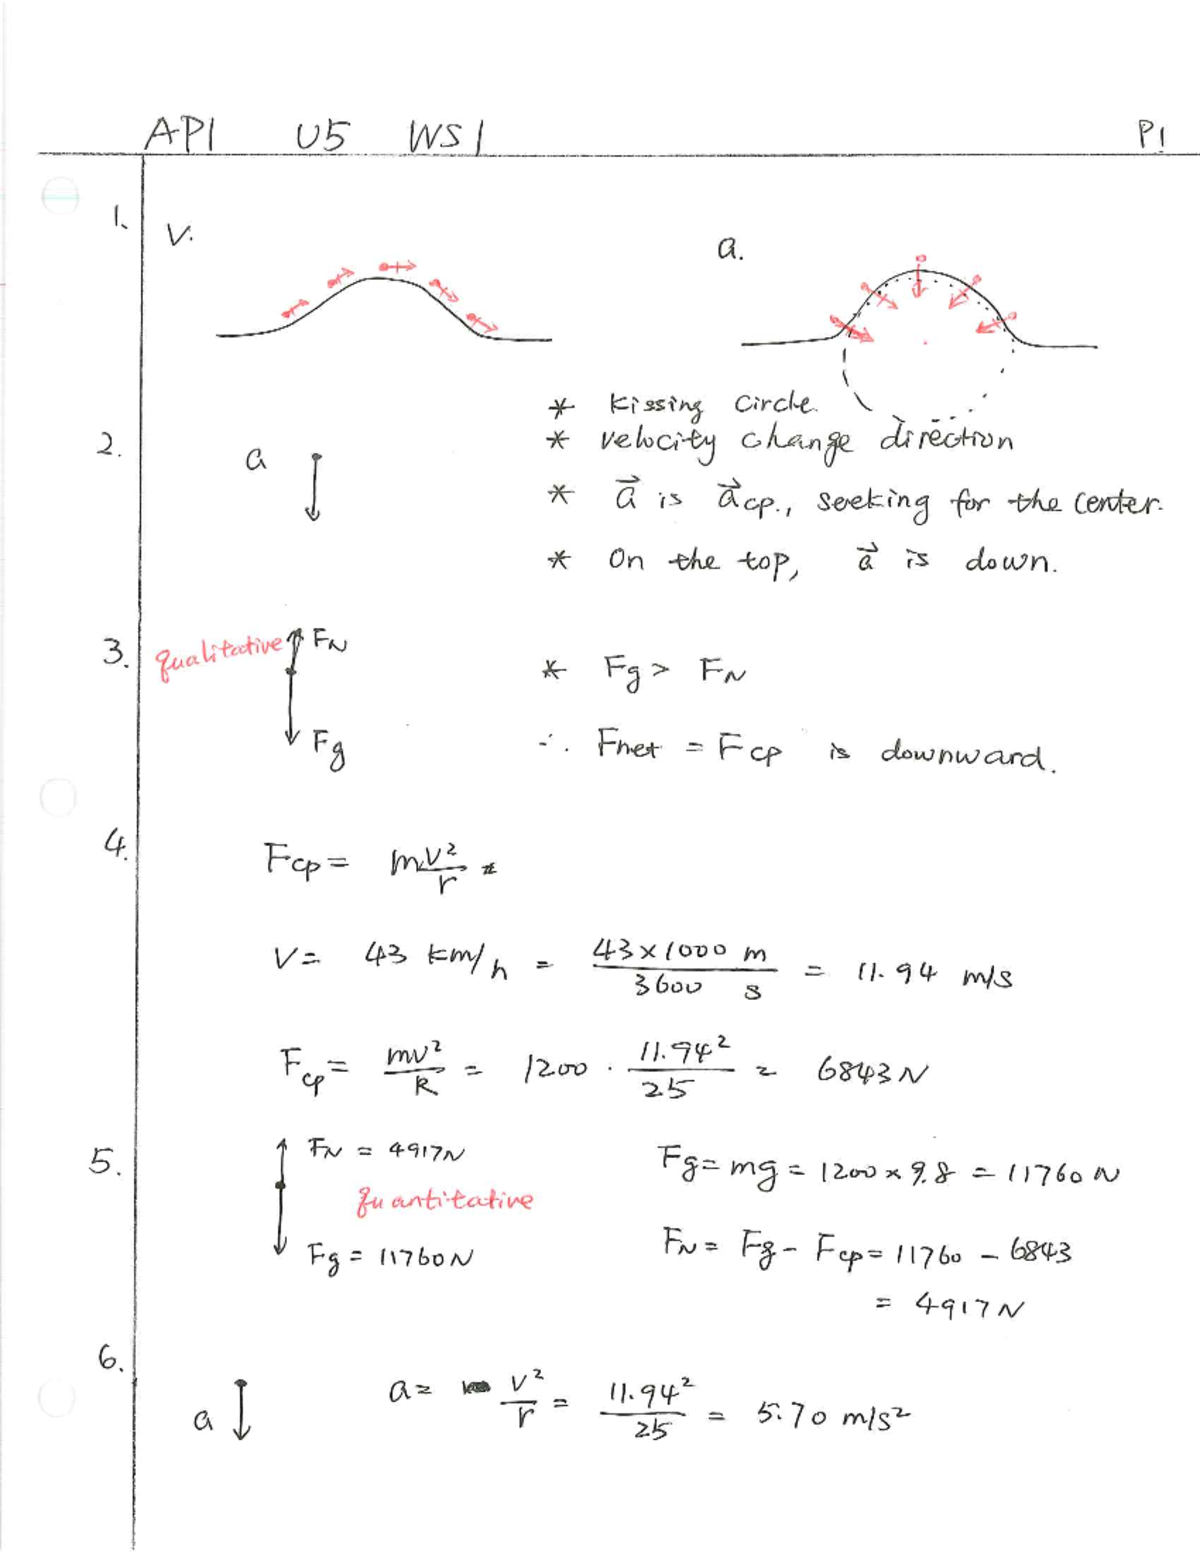 AP1 U5 WS1 P1
1. V: a.
* Kissing Circle.
2. a * velocity change direction
* a⃗ is a⃗cp., seeking for the center.
* On the top, a⃗ is down.
3. qualitative FN * Fg > FN
Fg ∴ Fnet = Fcp is downward.
4. Fcp = mv²/r
V = 43 km/h = 43×1000 m / 3600 s = 11.94 m/s
Fcp = mv²/R = 1200 · 11.94²/25 = 6843N
5. FN = 4917N Fg = mg = 1200 × 9.8 = 11760 N
quantitative
Fg = 11760N FN = Fg - Fcp = 11760 - 6843
= 4917N
6. a a = v²/r = 11.94²/25 = 5.70 m/s²